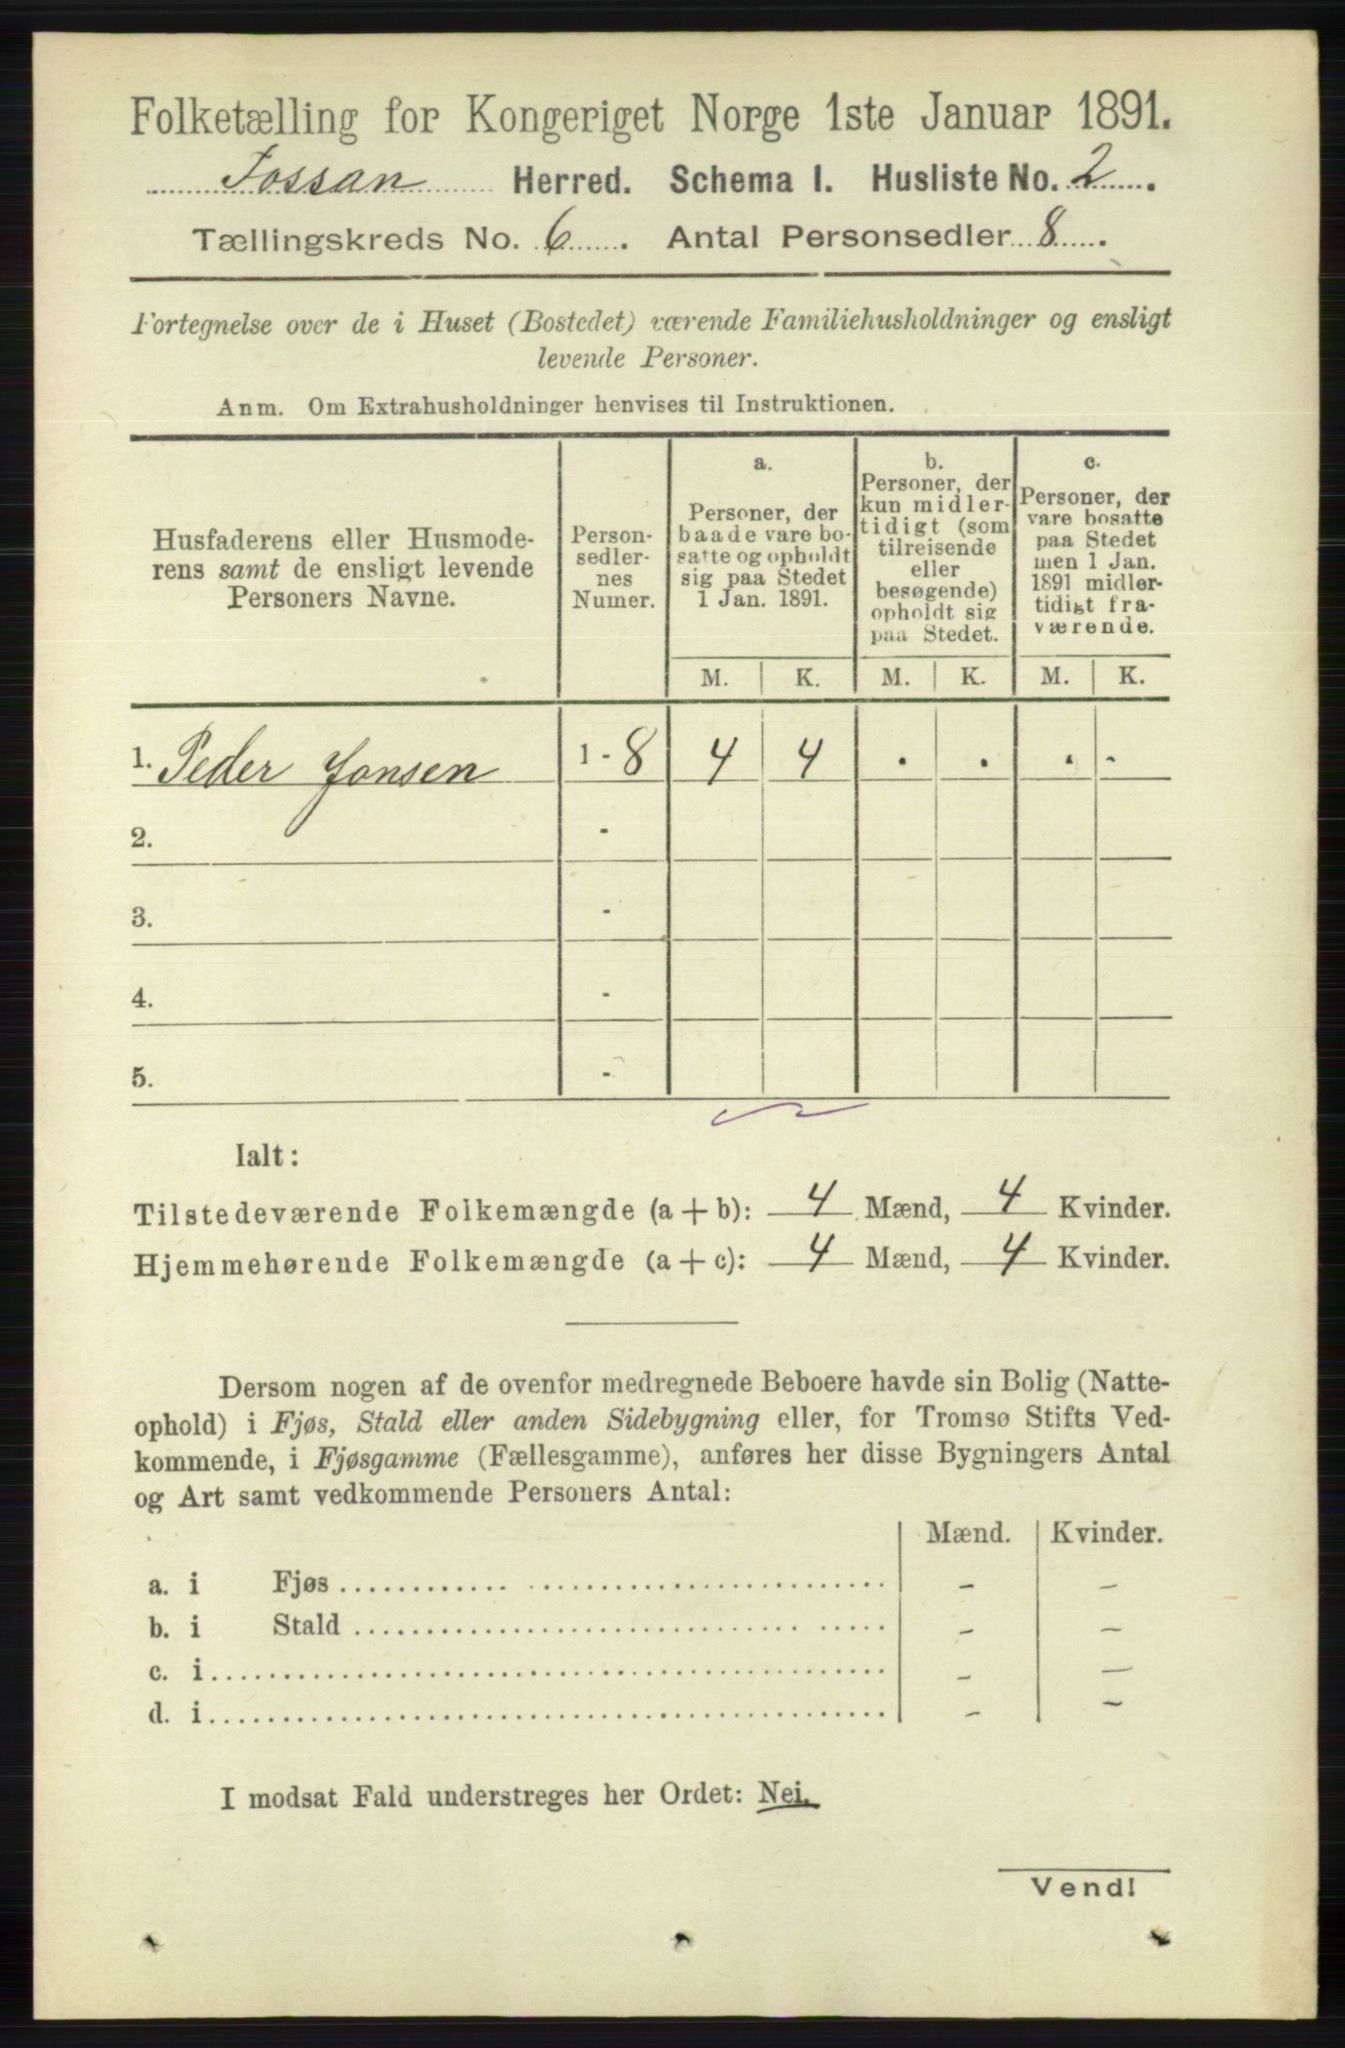 Folketælling for Kongeriget Norge 1ste Januar 1891.
Fossan Herred. Schema I. Husliste No. 2.
Tællingskreds No. 6. Antal Personsedler 8.
Fortegnelse over de i Huset (Bostedet) værende Familiehusholdninger og ensligt
levende Personer.
Anm. Om Extrahusholdninger henvises til Instruktionen.
Husfaderens eller Husmode-
rens samt de ensligt levende
Personers Navne.
Person-
sedler-
nes
Numer.
a.
Personer, der
baade vare bo-
satte og opholdt
sig paa Stedet
1 Jan. 1891.
b.
Personer, der
kun midler-
tidigt (som
tilreisende
eller
besøgende)
opholdt sig
paa Stedet.
c.
Personer, der
vare bosatte
paa Stedet
men 1 Jan.
1891 midler-
tidigt fra-
værende.
M. K. M. K. M. K.
1. Peder Jonsen 1 - 8 4 4 . . . .
2. -
3. -
4. -
5. -
Ialt:
Tilstedeværende Folkemængde (a + b): 4 Mænd, 4 Kvinder.
Hjemmehørende Folkemængde (a + c): 4 Mænd, 4 Kvinder.
Dersom nogen af de ovenfor medregnede Beboere havde sin Bolig (Natte-
ophold) i Fjøs, Stald eller anden Sidebygning eller, for Tromsø Stifts Ved-
kommende, i Fjøsgamme (Fællesgamme), anføres her disse Bygningers Antal
og Art samt vedkommende Personers Antal:
Mænd. Kvinder.
a. i Fjøs - -
b. i Stald - -
c. i - -
d. i - -
I modsat Fald understreges her Ordet: Nei.
Vend!